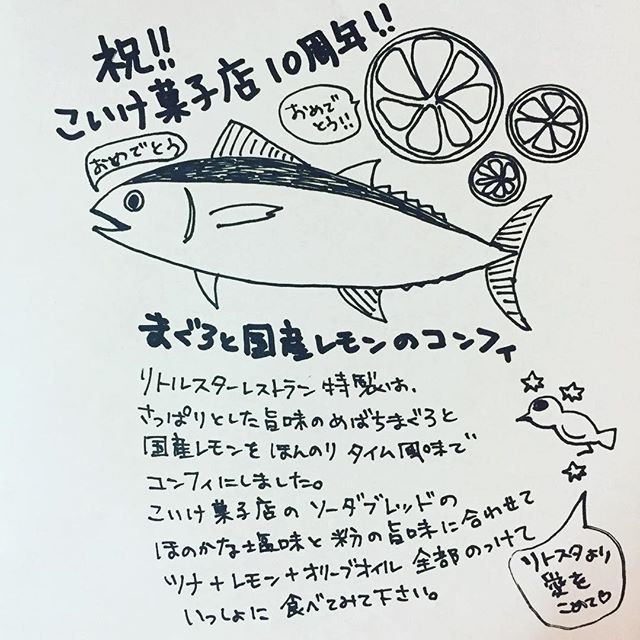 祝!!
こいけ菓子店10周年!!
おめでとう
おめで
とう!!
まぐろと国産レモンのコンフィ
リトルスターレストラン特製は、
さっぱりとした旨味のめばちまぐろと
国産レモンをほんのりタイム風味で
コンフィにしました。
こいけ菓子店のソーダブレッドの
ほのかな塩味と粉の旨味に合わせて
ツナ+レモン+オリーブオイル全部のっけて
いっしょに食べてみて下さい。
リトスタより
愛を
こめて♡